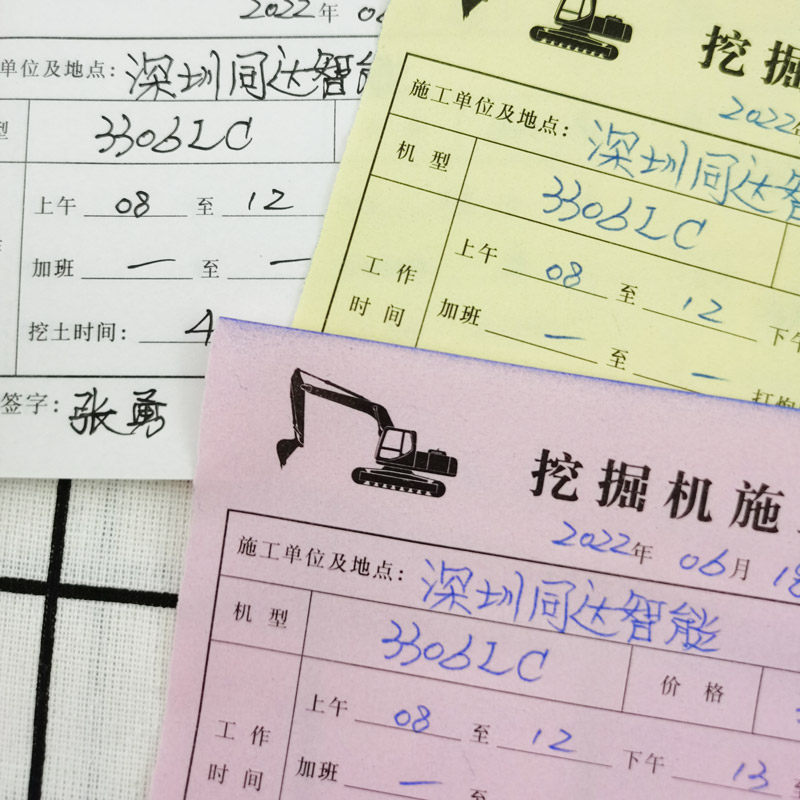 2022年
单位及地点：深圳同达智能
型 3306LC
上午 08 至 12
加班 一 至 一
挖土时间： 4
签字：张勇
挖掘
2022
施工单位及地点：深圳同达智
机型 3306LC
工作时间
上午 08 至 12 下午
加班 一 至 一
挖掘机施
2022年 06月 18
施工单位及地点：深圳同达智能
机型 3306LC 价格
工作时间
上午 08 至 12 下午 13
加班 一 至